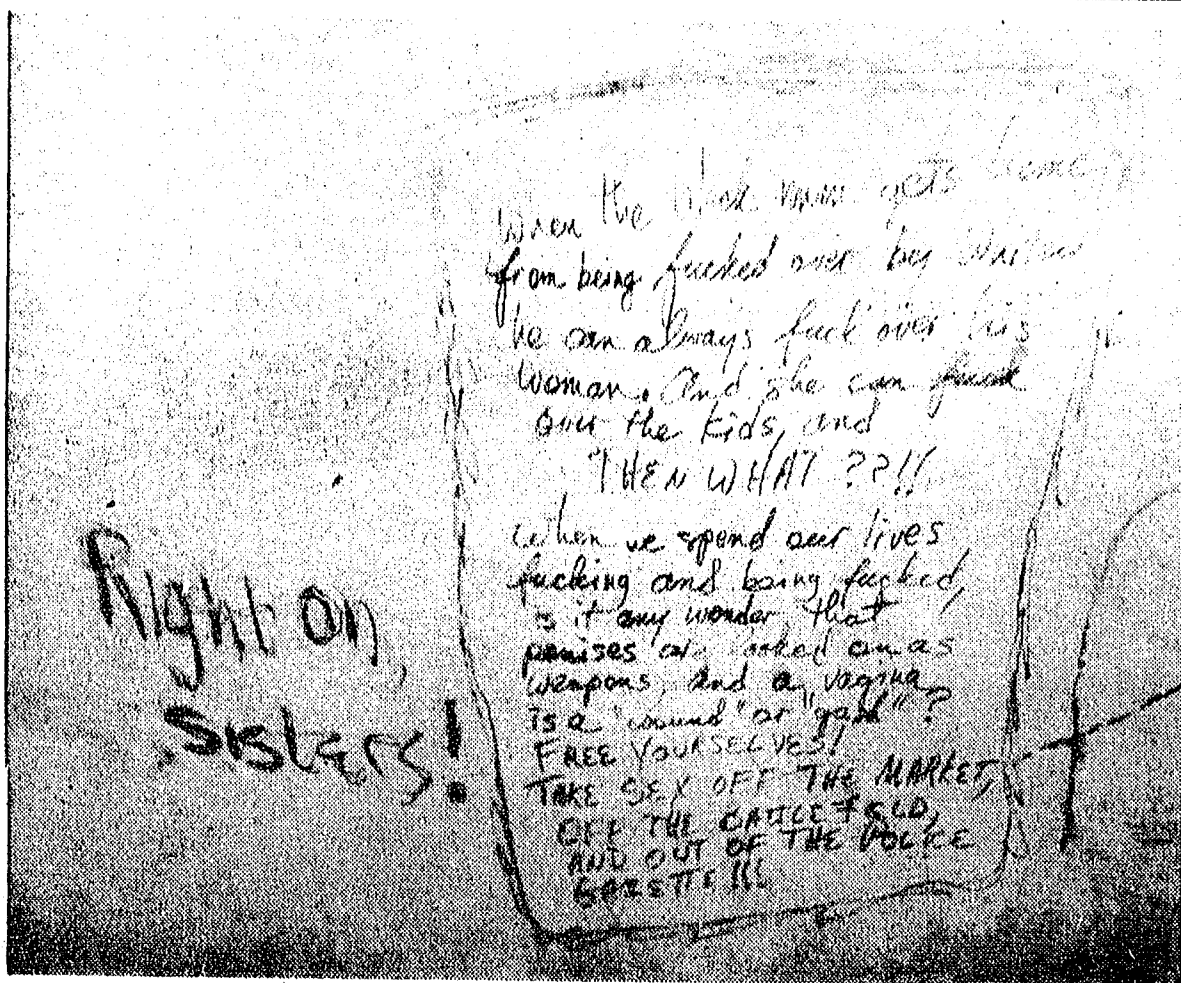 When the black man gets home
from being fucked over by
he can always fuck over his
woman. And she can fuck
over the kids, and
THEN WHAT ??!!
When we spend our lives
fucking and being fucked,
is it any wonder that
penises are looked on as
weapons, and a vagina
is a "wound" or "gash"?
FREE YOURSELVES!
TAKE SEX OFF THE MARKET,
OFF THE BATTLEFIELD,
AND OUT OF THE POLICE
GAZETTE !!!
Right on,
Sisters!